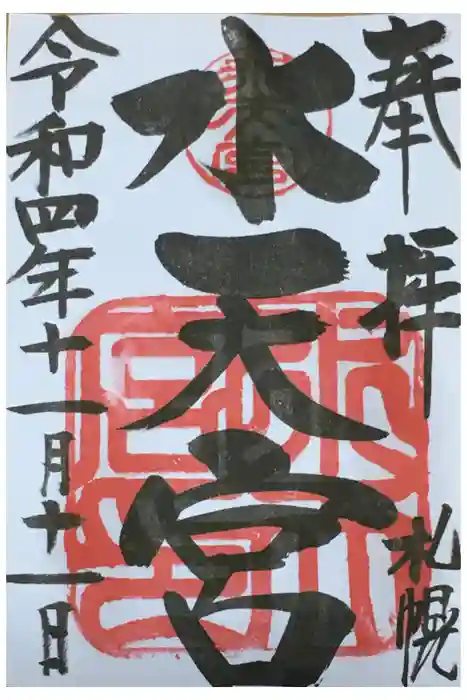 奉拝 札幌
水天宮
令和四年十一月十一日